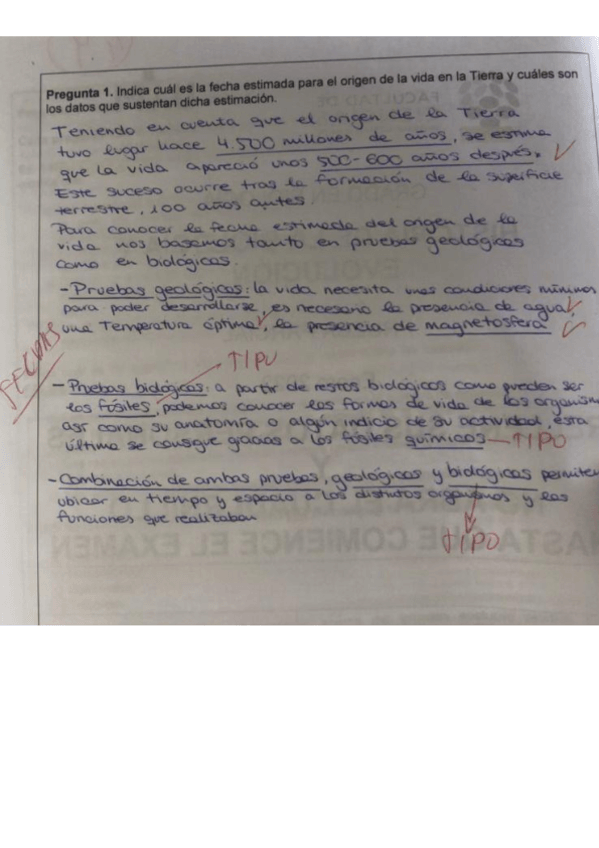 Pregunta 1. Indica cuál es la fecha estimada para el origen de la vida en la Tierra y cuáles son
los datos que sustentan dicha estimación.
Teniendo en cuenta que el origen de la Tierra
tuvo lugar hace 4.500 millones de años, se estima
que la vida apareció unos 500-600 años después.
Este suceso ocurre tras la formación de la superficie
terrestre, 100 años antes.
Para conocer la fecha estimada del origen de la
vida nos basamos tanto en pruebas geológicas
como en biológicas.
- Pruebas geológicas: la vida necesita unas condiciones mínimas
para poder desarrollarse, es necesario la presencia de agua,
una temperatura óptima, la presencia de magnetosfera
FECHAS
TIPO
- Pruebas biológicas: a partir de restos biológicos como pueden ser
los fósiles, podemos conocer las formas de vida de los organism
así como su anatomía o algún indicio de su actividad, esta
última se consigue gracias a los fósiles químicos TIPO
- Combinación de ambas pruebas, geológicas y biológicas permiten
ubicar en tiempo y espacio a los distintos organismos y las
funciones que realizaban
TIPO